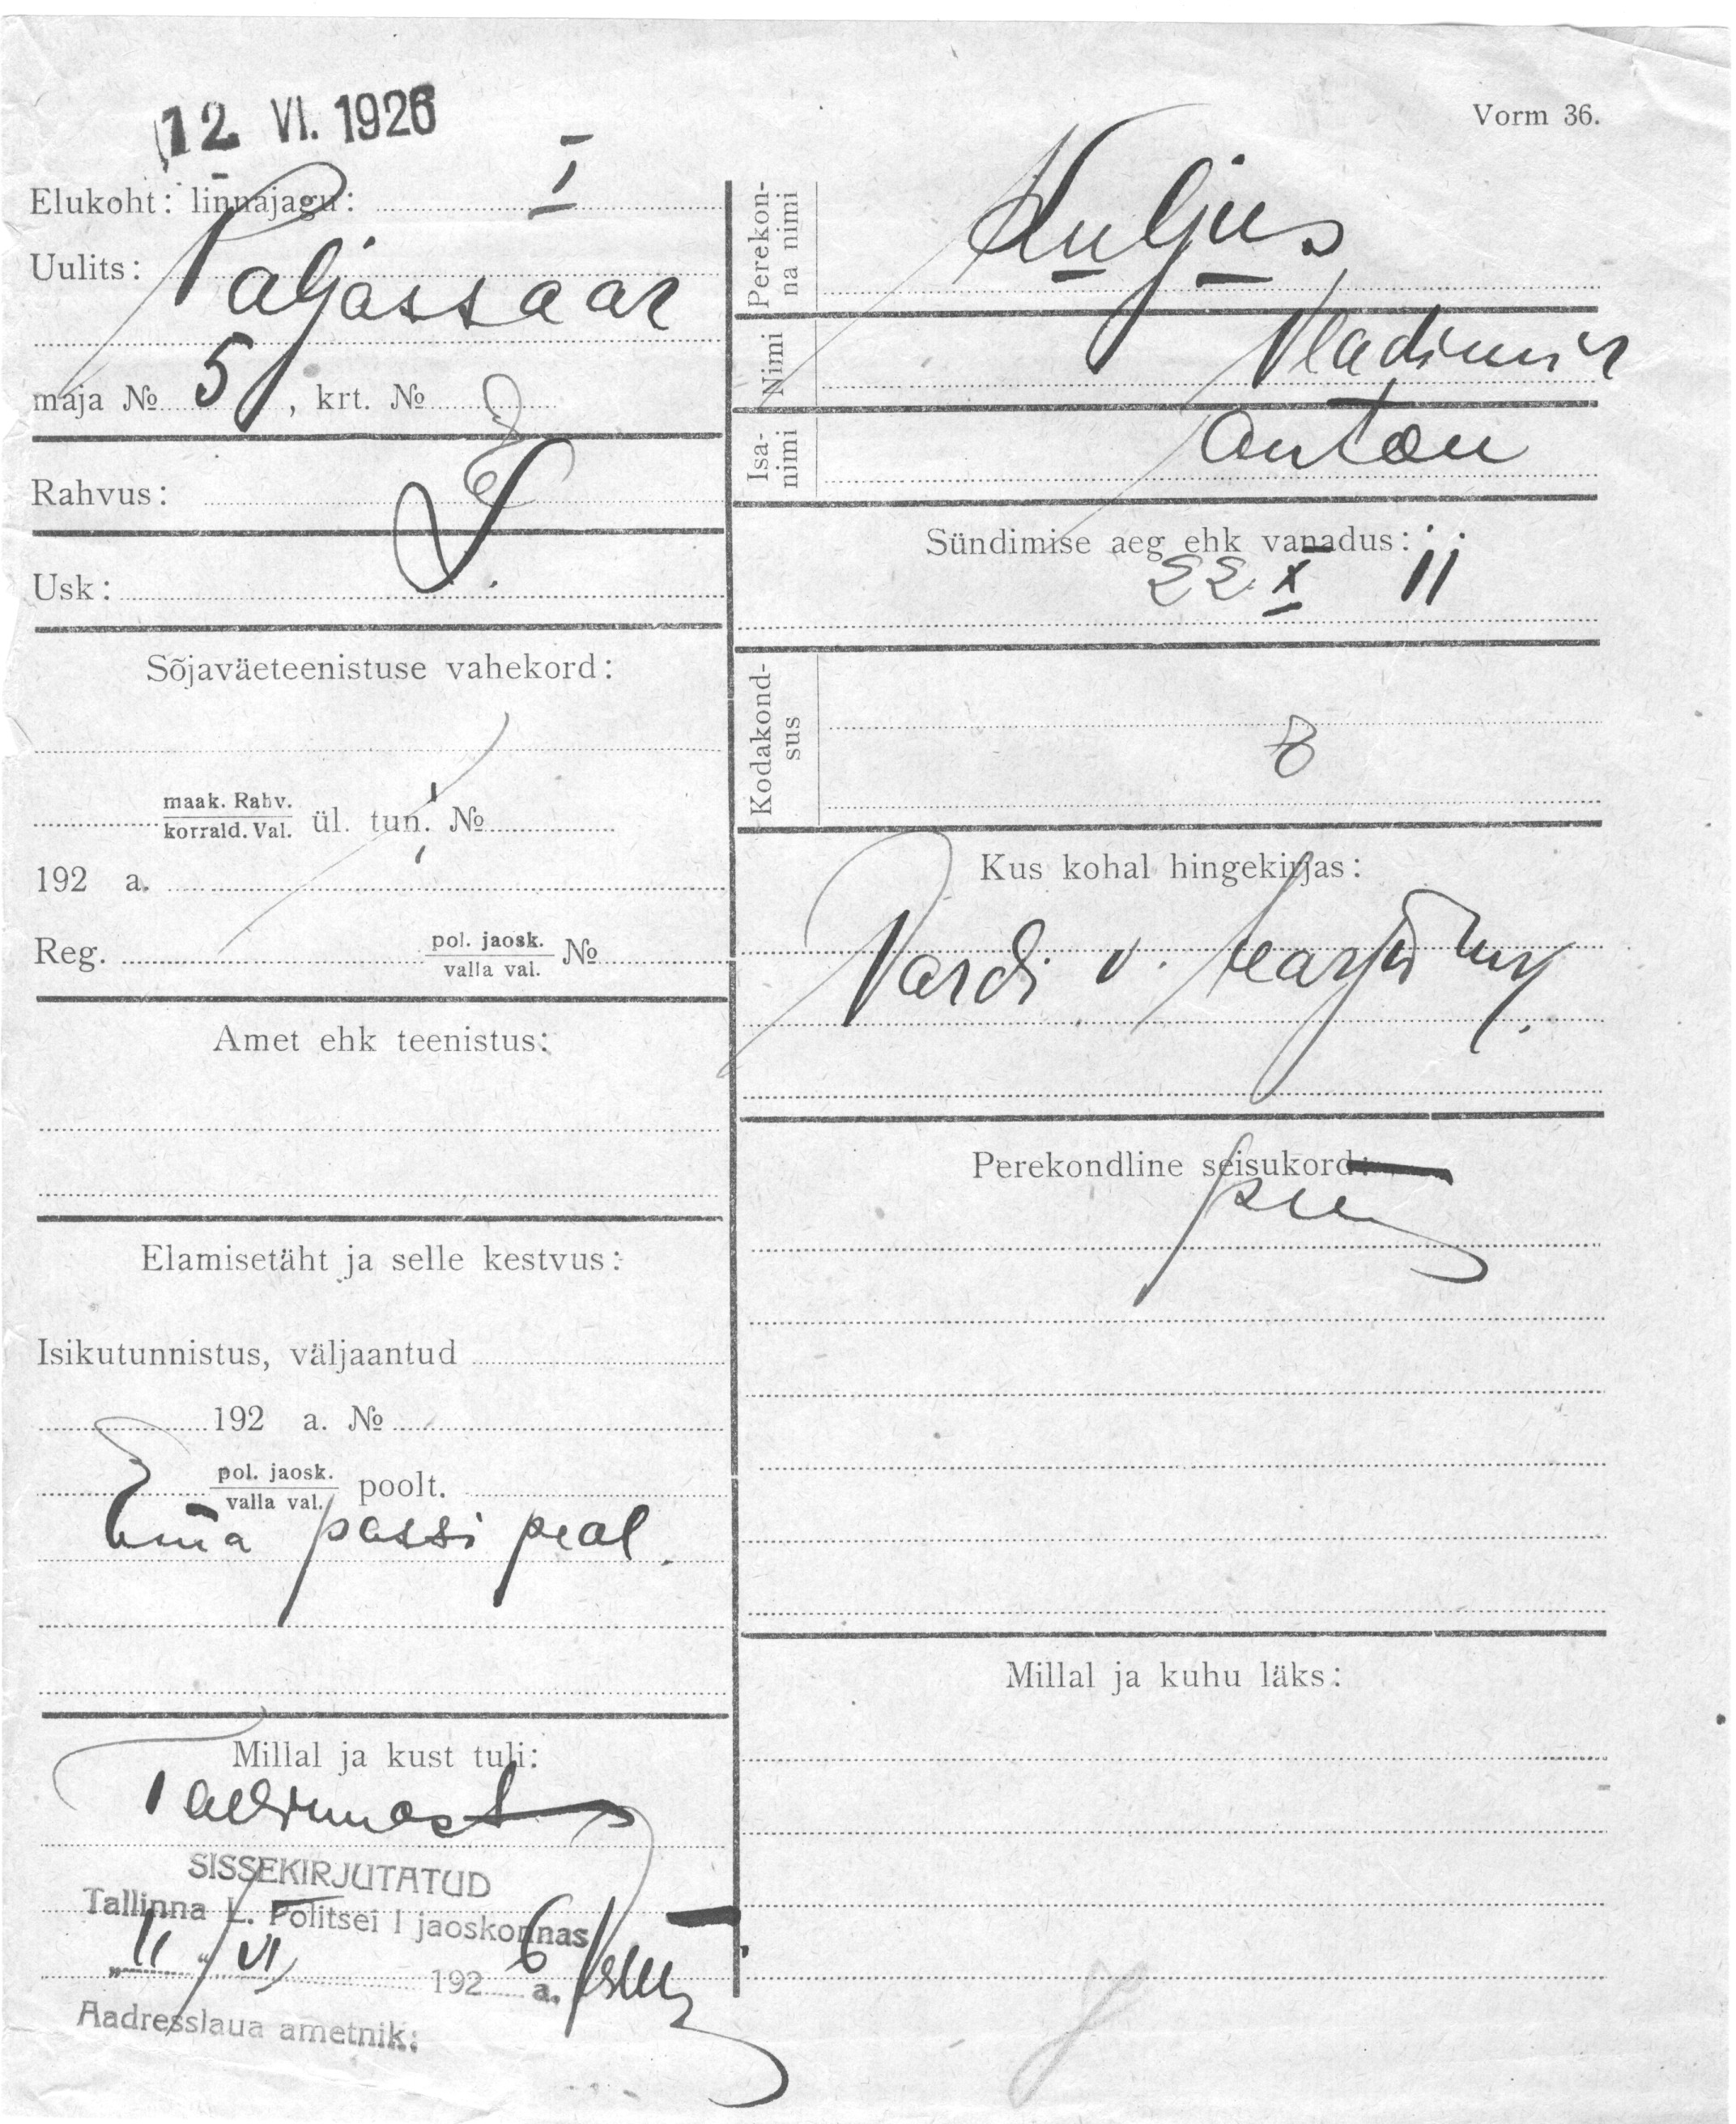 12. VI. 1926
Vorm 36.
Elukoht: linnajagu: I
Uulits: Paljassaar
maja № 5, krt. №
Rahvus: e
Usk:
Sõjaväeteenistuse vahekord:
maak. Rahv.
korrald. Val. ül. tun. №
192 a.
Reg. pol. jaosk.
valla val. №
Amet ehk teenistus:
Elamisetäht ja selle kestvus:
Isikutunnistus, väljaantud
192 a. №
pol. jaosk.
valla val. poolt.
Ema passi peal.
Millal ja kust tuli:
Tallinnast
SISSEKIRJUTATUD
Tallinna L. Politsei I jaoskonnas
"11" VI 1926 a.
Aadresslaua ametnik:
Perekon-
na nimi Kuljus
Nimi Vladimir
Isa-
nimi Anton
Sündimise aeg ehk vanadus:
22 X 11
Kodakond-
sus
Kus kohal hingekirjas:
Vardi v. Harju
Perekondline seisukord:
Millal ja kuhu läks: